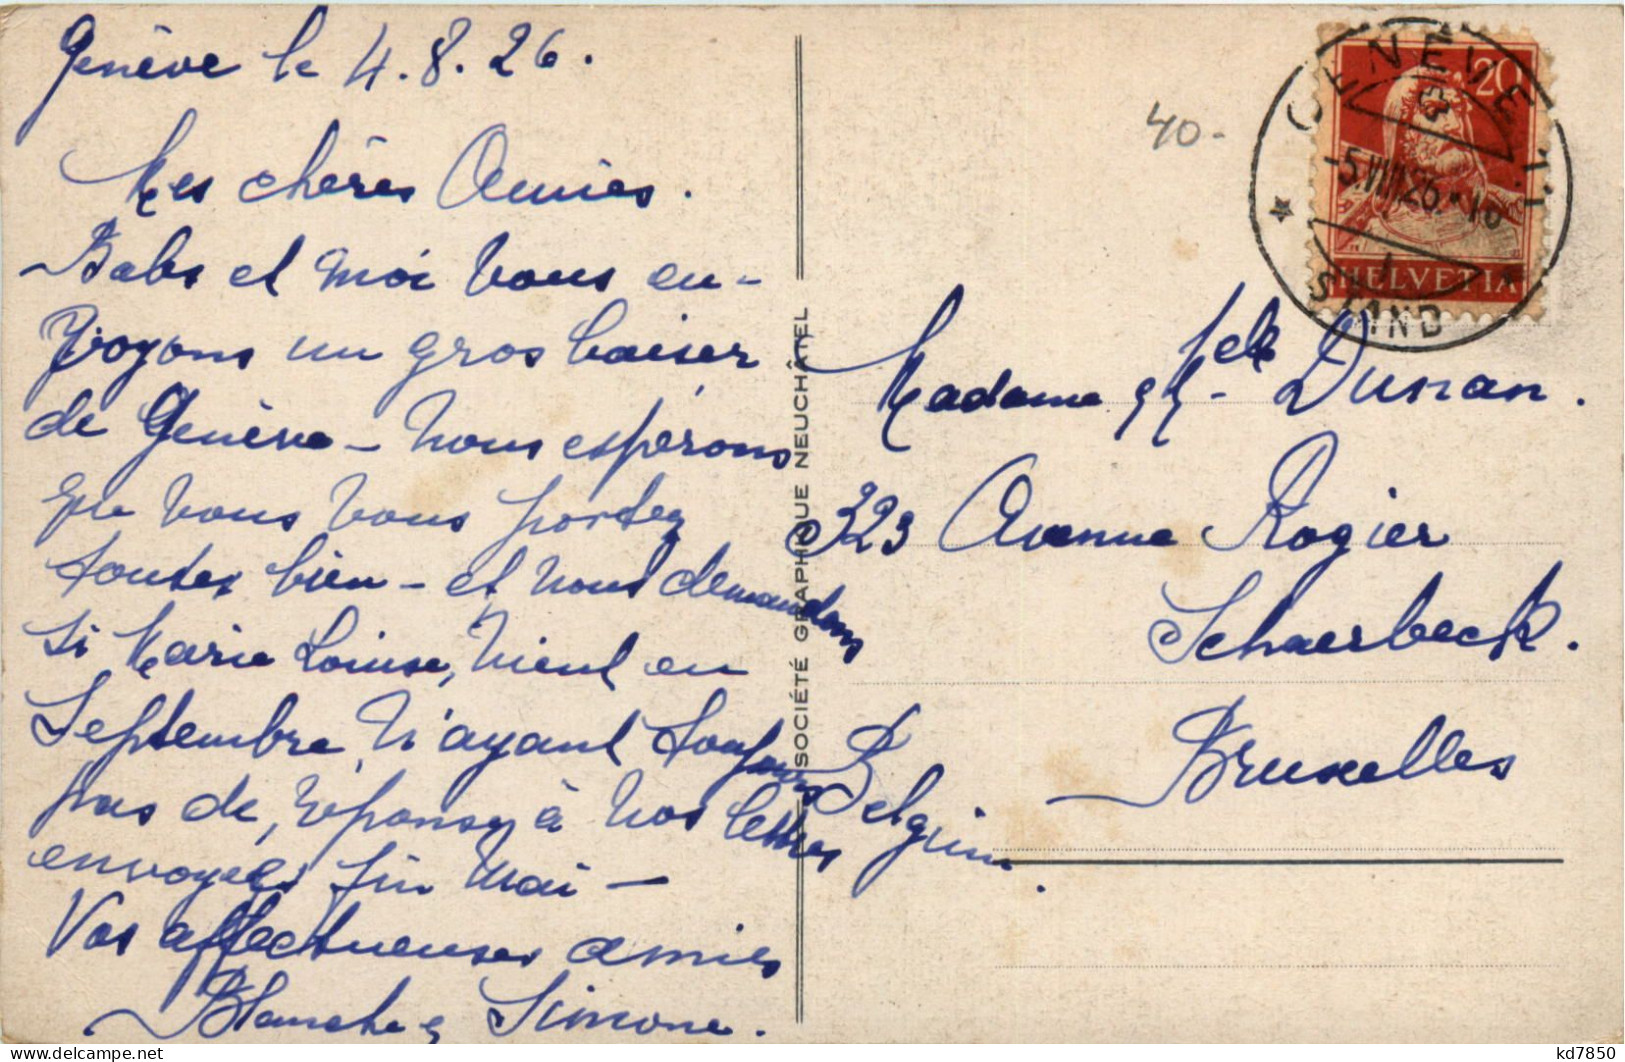 Genève le 4.8.26.
Mes chères Amies.
Babs et moi vous en-
voyons un gros baiser
de Genève – Nous espérons
que vous vous portez
toutes bien – et nous demandons
si Marie Louise, vient en
Septembre, n'ayant toujours
pas de, réponse, à nos lettres
envoyées fin Mai –
Vos affectueuses amies
Blanche & Simone.
SOCIÉTÉ GRAPHIQUE NEUCHÂTEL
40-
GENÈVE 1
-5.VIII.26.
STAND
20
HELVETIA
Madame & Melle Dunan.
323 Avenue Rogier
Schaerbeck.
Bruxelles
Belgium.
kd7850